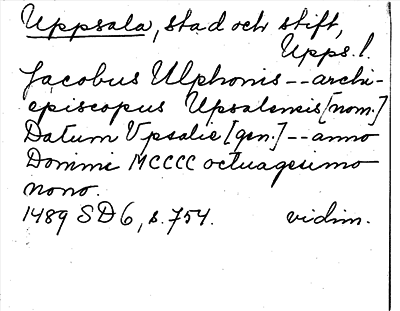 Uppsala, stad och stift,
Upps. l.
Jacobus Ulphonis -- archi-
episcopus Upsalensis [nom.]
Datum Vpsalie [gen.] -- anno
Domini MCCCC octuagesimo
nono.
1489 SD 6, s. 754. vidim.